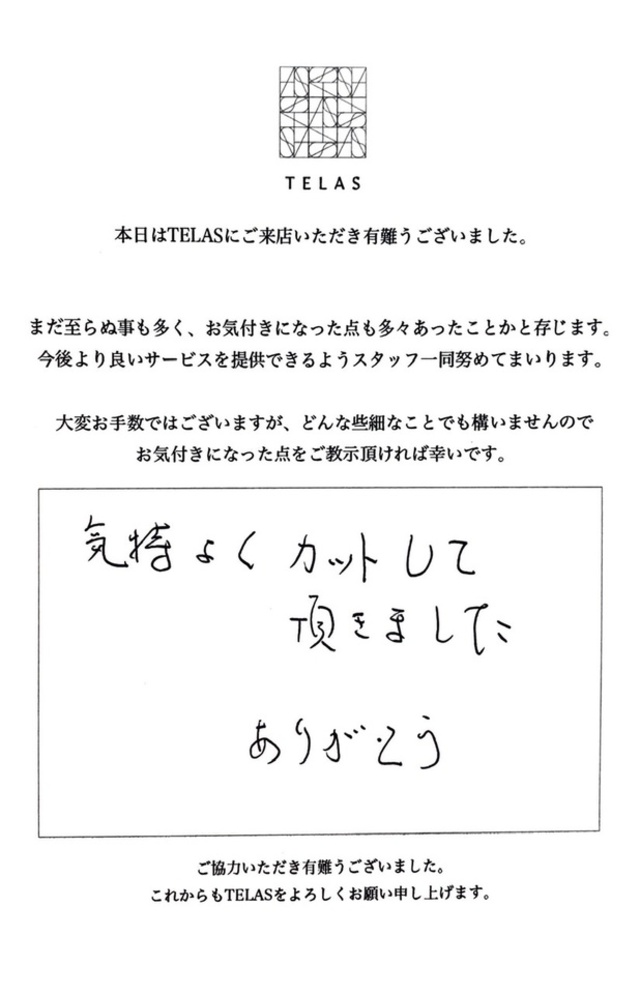 TELAS
本日はTELASにご来店いただき有難うございました。
まだ至らぬ事も多く、お気付きになった点も多々あったことかと存じます。
今後より良いサービスを提供できるようスタッフ一同努めてまいります。
大変お手数ではございますが、どんな些細なことでも構いませんので
お気付きになった点をご教示頂ければ幸いです。
気持よくカットして
頂きました
ありがとう
ご協力いただき有難うございました。
これからもTELASをよろしくお願い申し上げます。